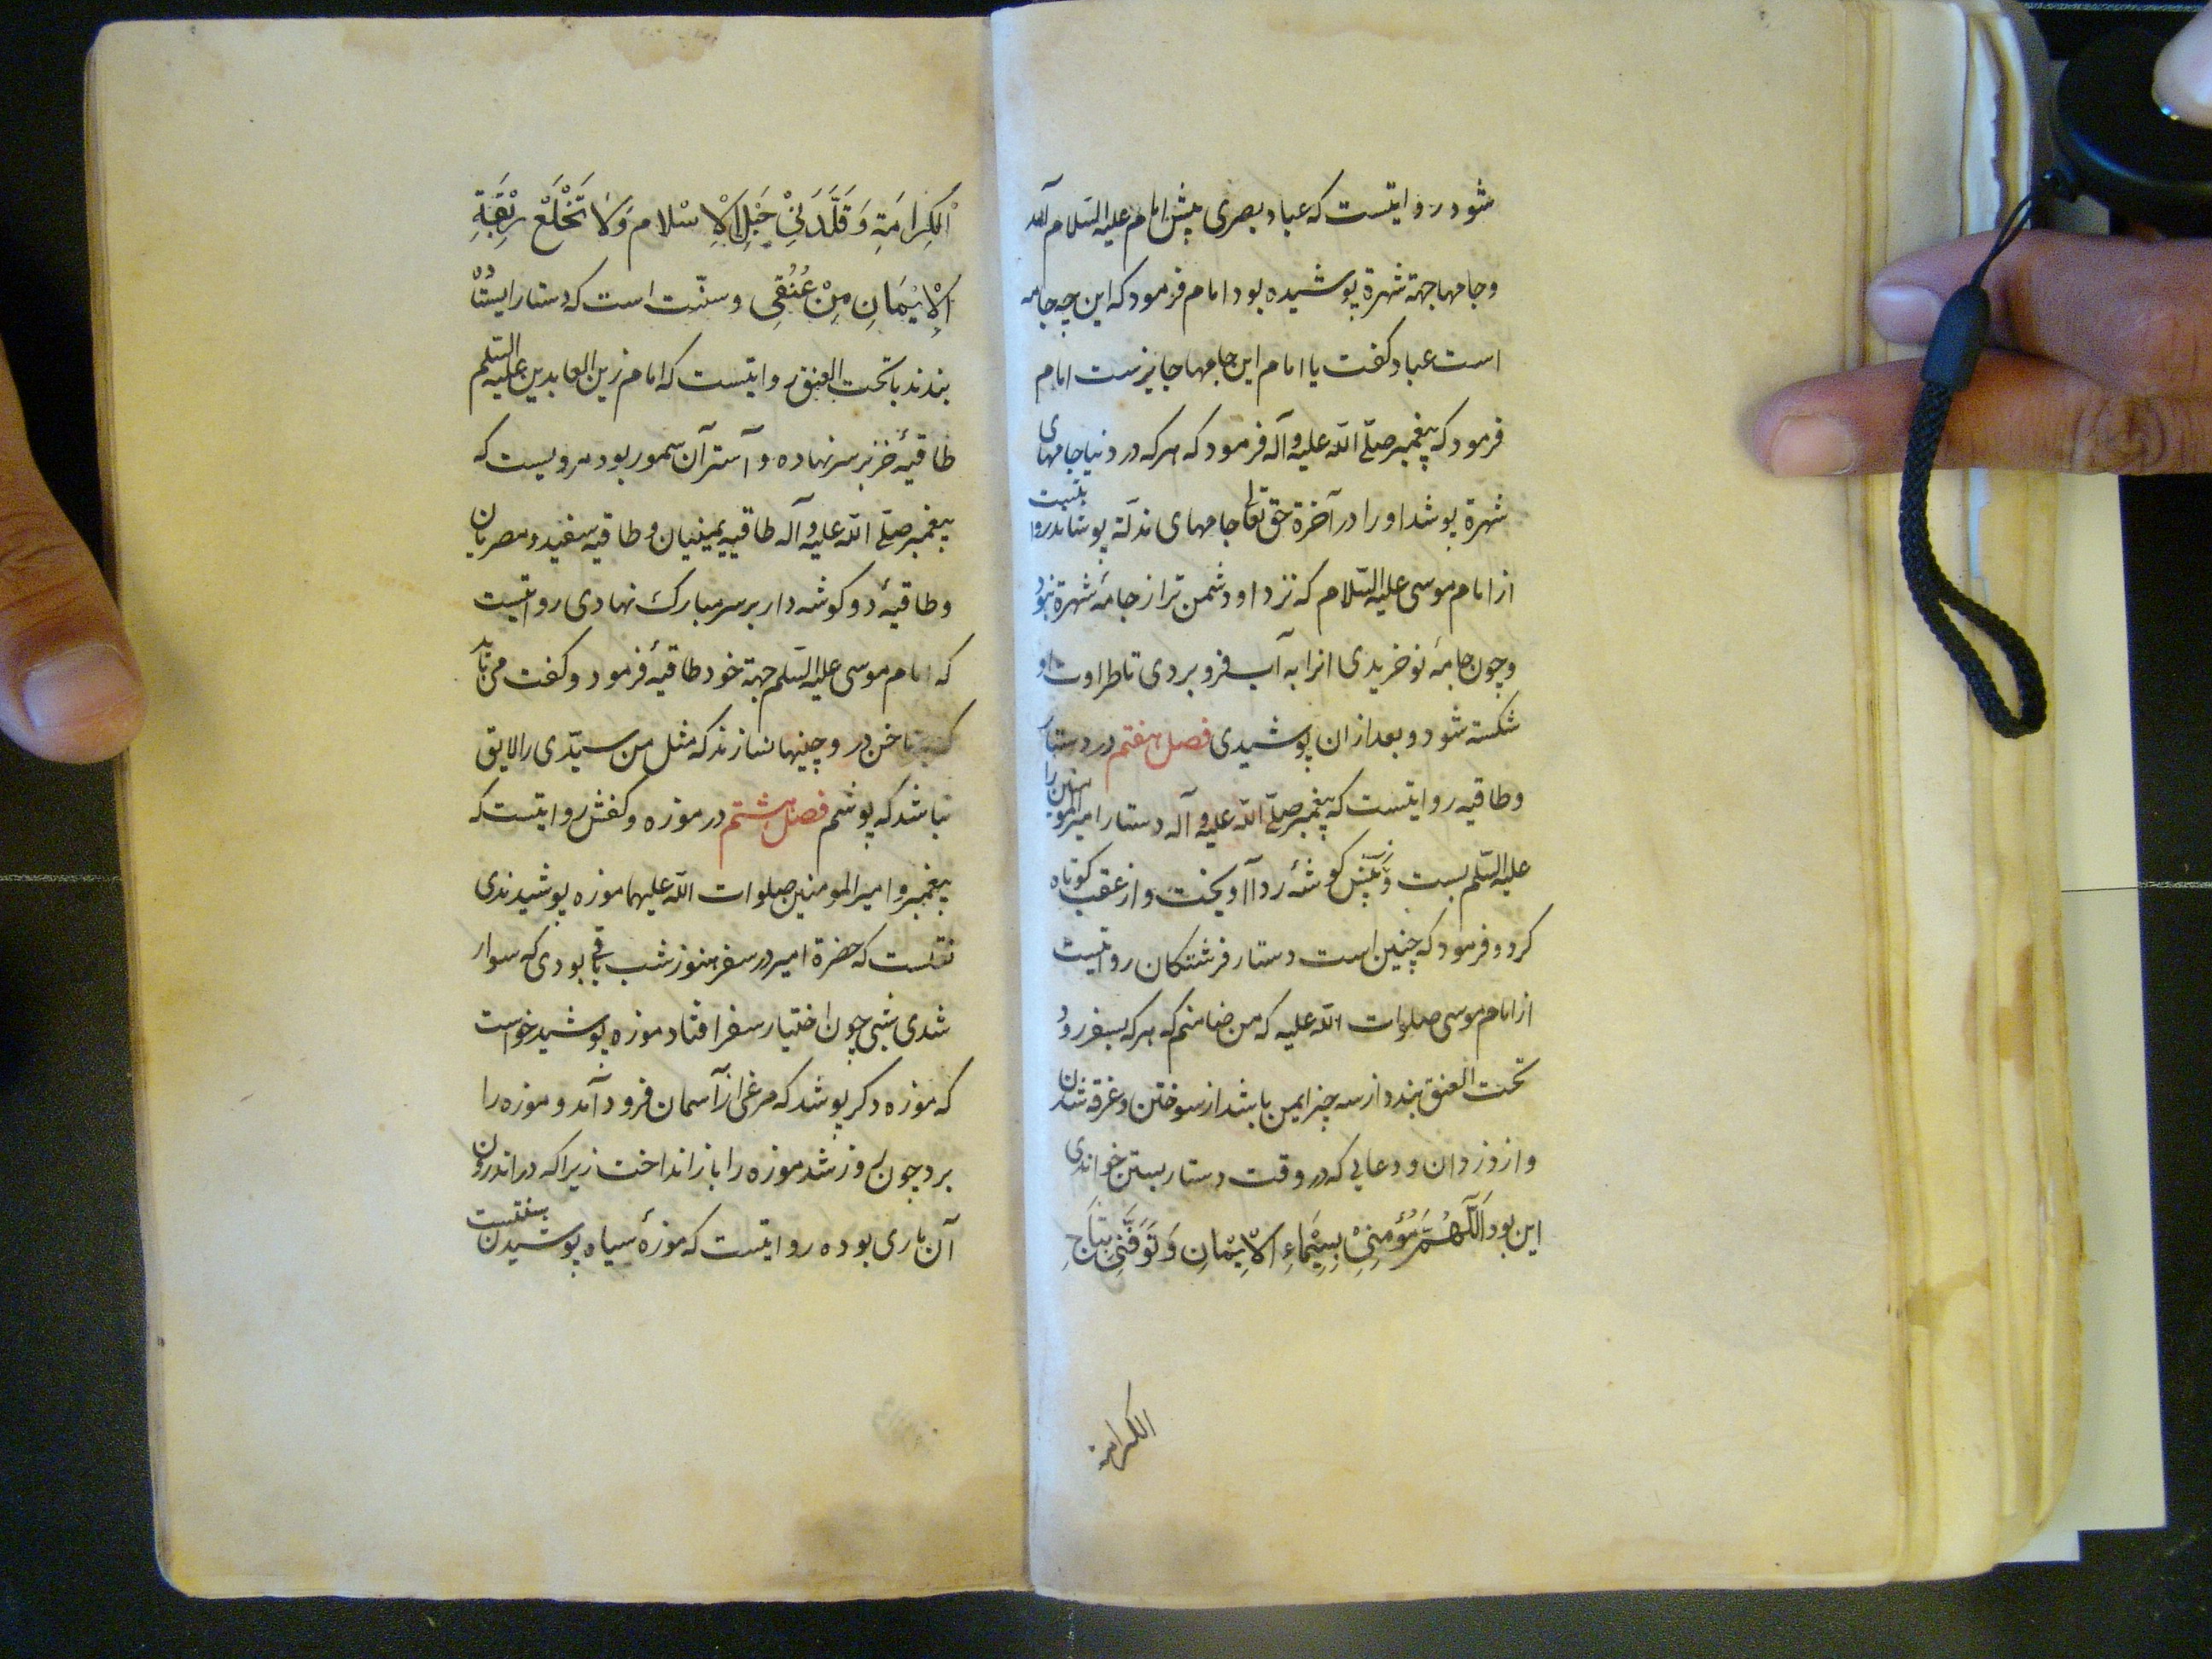 شود روایتست که عباد بصری پیش امام علیه السلام آمد
و جامها جهة شهرة پوشیده بود امام فرمود که این چه جامه
است عباد کفت یا امام این جامها جایزست امام
فرمود که پیغمبر صلّی الله علیه و آله فرمود که هر که در دنیا جامهای
شهرة پوشد او را در آخرة حق تعا جامهای مذلة پوشاند روایتست
از امام موسی علیه السّلام که نزد او دشمن تر از جامهٔ شهرة نبود
و چون جامهٔ نو خریدی انرا به آب فرو بردی تا طراوت او
شکسته شود و بعد از ان پوشیدی فصل هفتم در دستار
و طاقیه روایتست که پیغمبر صلّی الله علیه و آله دستار امیر المومنین را
علیه السّلم بست و ز پیش کوشهٔ ردا آویخت و از عقب کوتاه
کرد و فرمود که چنین است دستار فرشتکان روایتست
از امام موسی صلوات الله علیه که من ضامنم که هر که بسفر رود
تحت العنق بندد از سه چیز ایمن باشد از سوختن و غرقه شدن
و از دزدان و دعایی که در وقت دستار بستن خواندی
این بود اَللّٰهُمَّ سَوِّمْنِیْ بِسِیْمَاءِ الْاِیْمَانِ وَ تَوِّجْنِیْ بِتَاجِ
الکرامة
اَلْکِرَامَةِ وَ قَلِّدْنِیْ حَبْلَ الْاِسْلام وَ لَا تَخْلَعْ رِبْقَةِ
الْاِیْمَانِ مِنْ عُنُقِی و سنّت است که دستار ایستاده
بندند با تحت العنق روایتست که امام زین العابدین علیه السّلم
طاقیهٔ خز بر سر نهاده و آستر آن سمور بود مرویست که
پیغمبر صلّی الله علیه و آله طاقیه یمنیان و طاقیه سفید و مصریان
و طاقیهٔ دو کوشه دار بر سر مبارک نهادی روایتست
که امام موسی علیه السّلم جهة خود طاقیهٔ فرمود و کفت می باید
که ناخن در و چینها نسازند که مثل من سیّدی را لایق
نباشد که پوشم فصل هشتم در موزه و کفش روایتست که
پیغمبر و امیر المومنین صلوات الله علیهما موزه پوشیدندی
نقلست که حضرة امیر در سفر هنوز شب باقی بودی که سوار
شدی شبی چون اختیار سفر افتاد موزه پوشید خواست
که موزه دکر پوشد که مرغی از آسمان فرود آمد و موزه را
برد چون روز شد موزه را باز انداخت زیرا که در اندرون
آن ماری بوده روایتست که موزهٔ سیاه پوشیدن